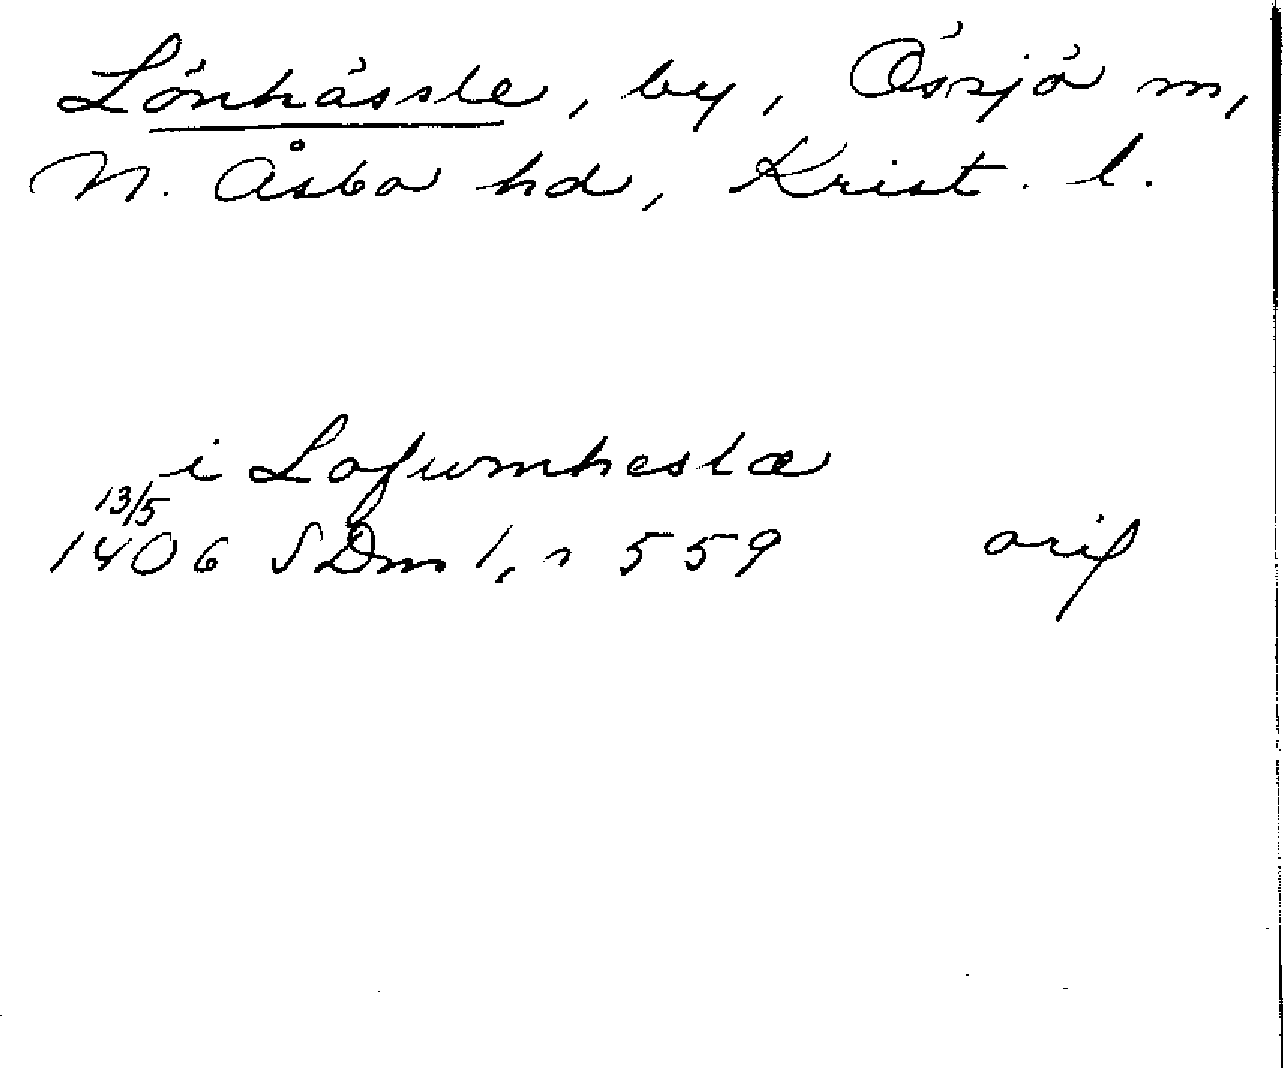 Lönhässle, by, Össjö sn,
N. Åsbo hd, Krist. l.
i Lofwmheslæ
13/5
1406 SDns 1, s 559 orig